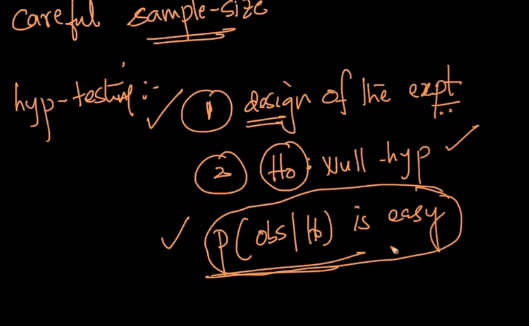 careful sample-size
hyp-testing :- ✓ 1 design of the expt
2 H0: Null-hyp ✓
✓ P(obs|H0) is easy